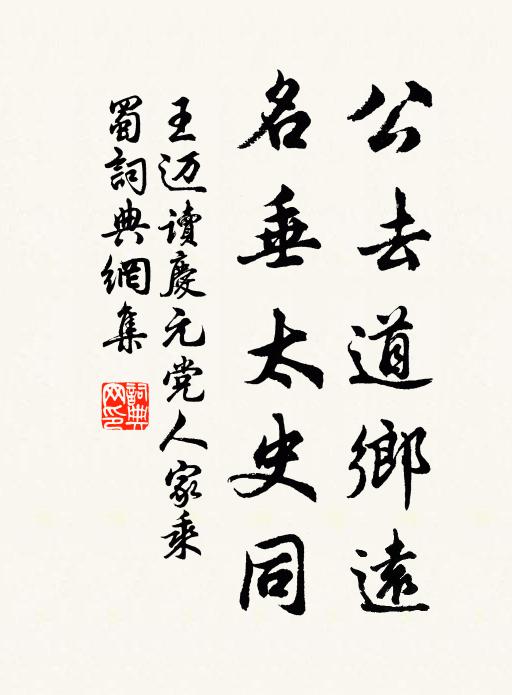 公去道鄉遠
名垂太史同
王迈讀慶元党人家乘
蜀詞典網集
詞典
网印